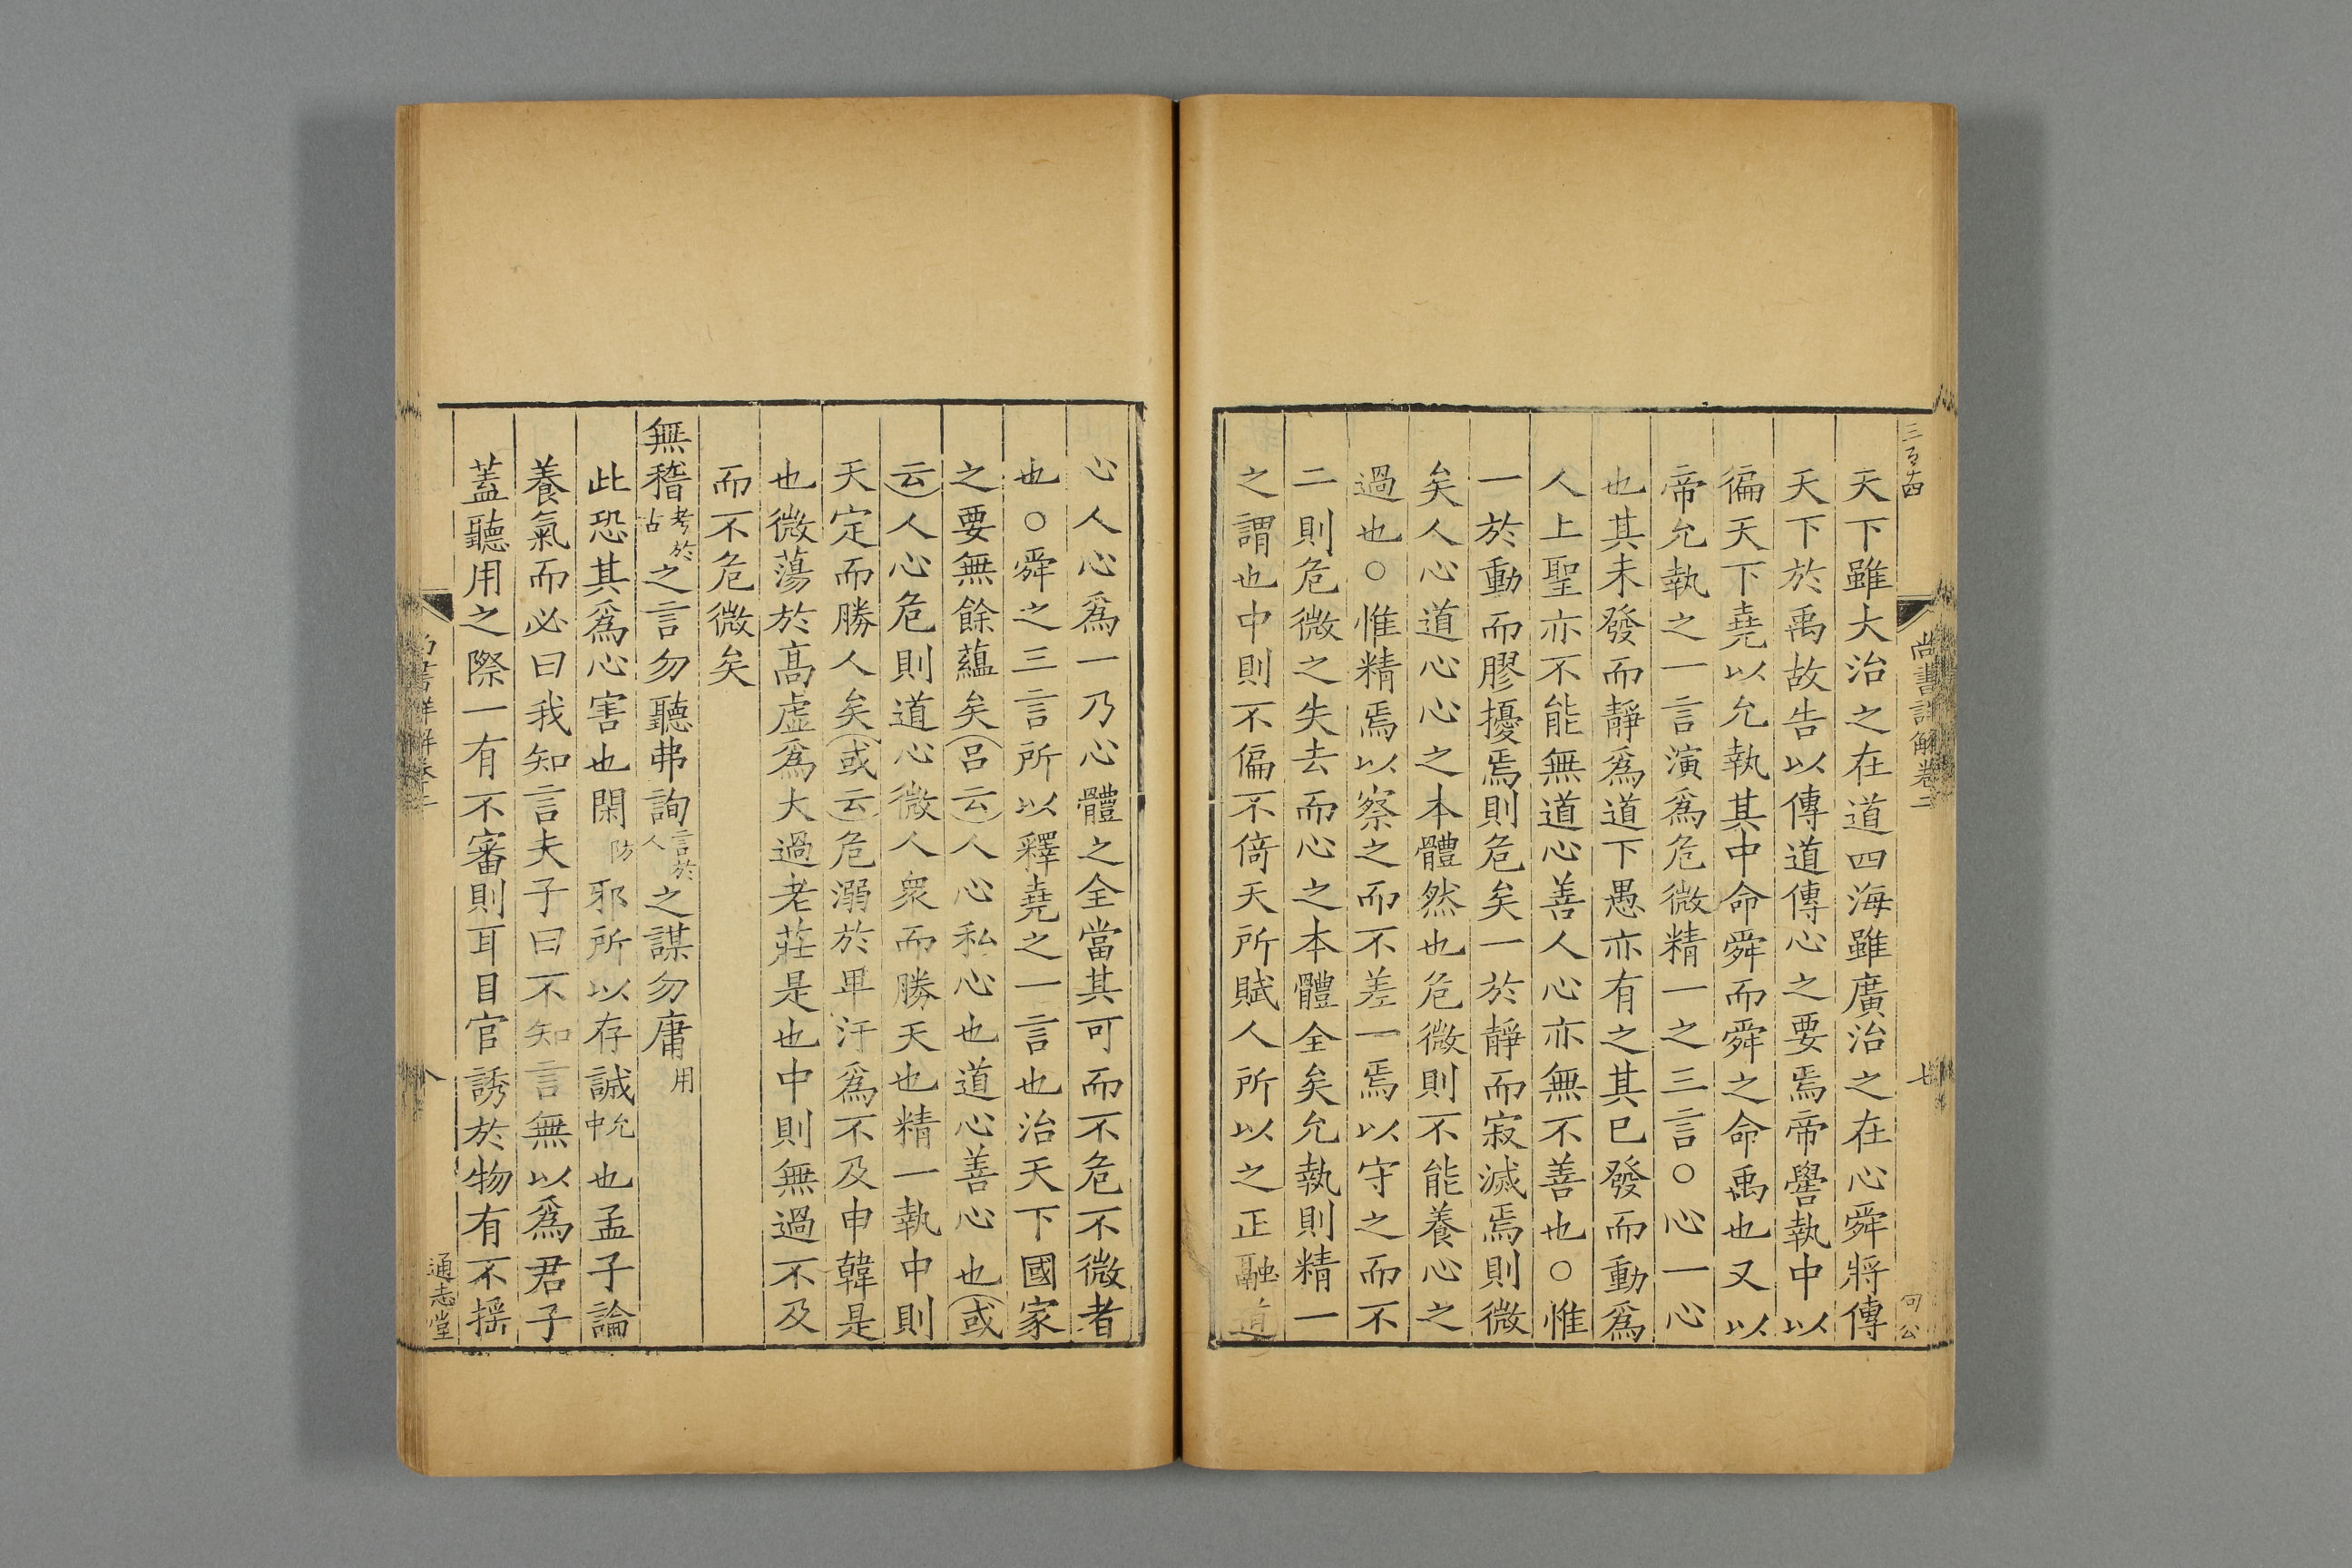 三百十四
尚書詳解卷二
七
天下雖大治之在道四海雖廣治之在心舜將傳
天下於禹故告以傳道傳心之要焉帝嚳執中以
徧天下堯以允執其中命舜而舜之命禹也又以
帝允執之一言演爲危微精一之三言○心一心
也其未發而靜爲道下愚亦有之其已發而動爲
人上聖亦不能無道心善人心亦無不善也○惟
一於動而膠擾焉則危矣一於靜而寂滅焉則微
矣人心道心心之本體然也危微則不能養心之
過也○惟精焉以察之而不差一焉以守之而不
二則危微之失去而心之本體全矣允執則精一
之謂也中則不偏不倚天所賦人所以之正融道
心人心爲一乃心體之全當其可而不危不微者
也○舜之三言所以釋堯之一言也治天下國家
之要無餘蘊矣(呂云)人心私心也道心善心也(或
云)人心危則道心微人衆而勝天也精一執中則
天定而勝人矣(或云)危溺於卑汙爲不及申韓是
也微蕩於高虛爲大過老莊是也中則無過不及
而不危微矣
無稽考於古之言勿聽弗詢言於人之謀勿庸用
此恐其爲心害也閑防邪所以存誠允中也孟子論
養氣而必曰我知言夫子曰不知言無以爲君子
蓋聽用之際一有不審則耳目官誘於物有不搖
尚書詳解卷二
八
通志堂